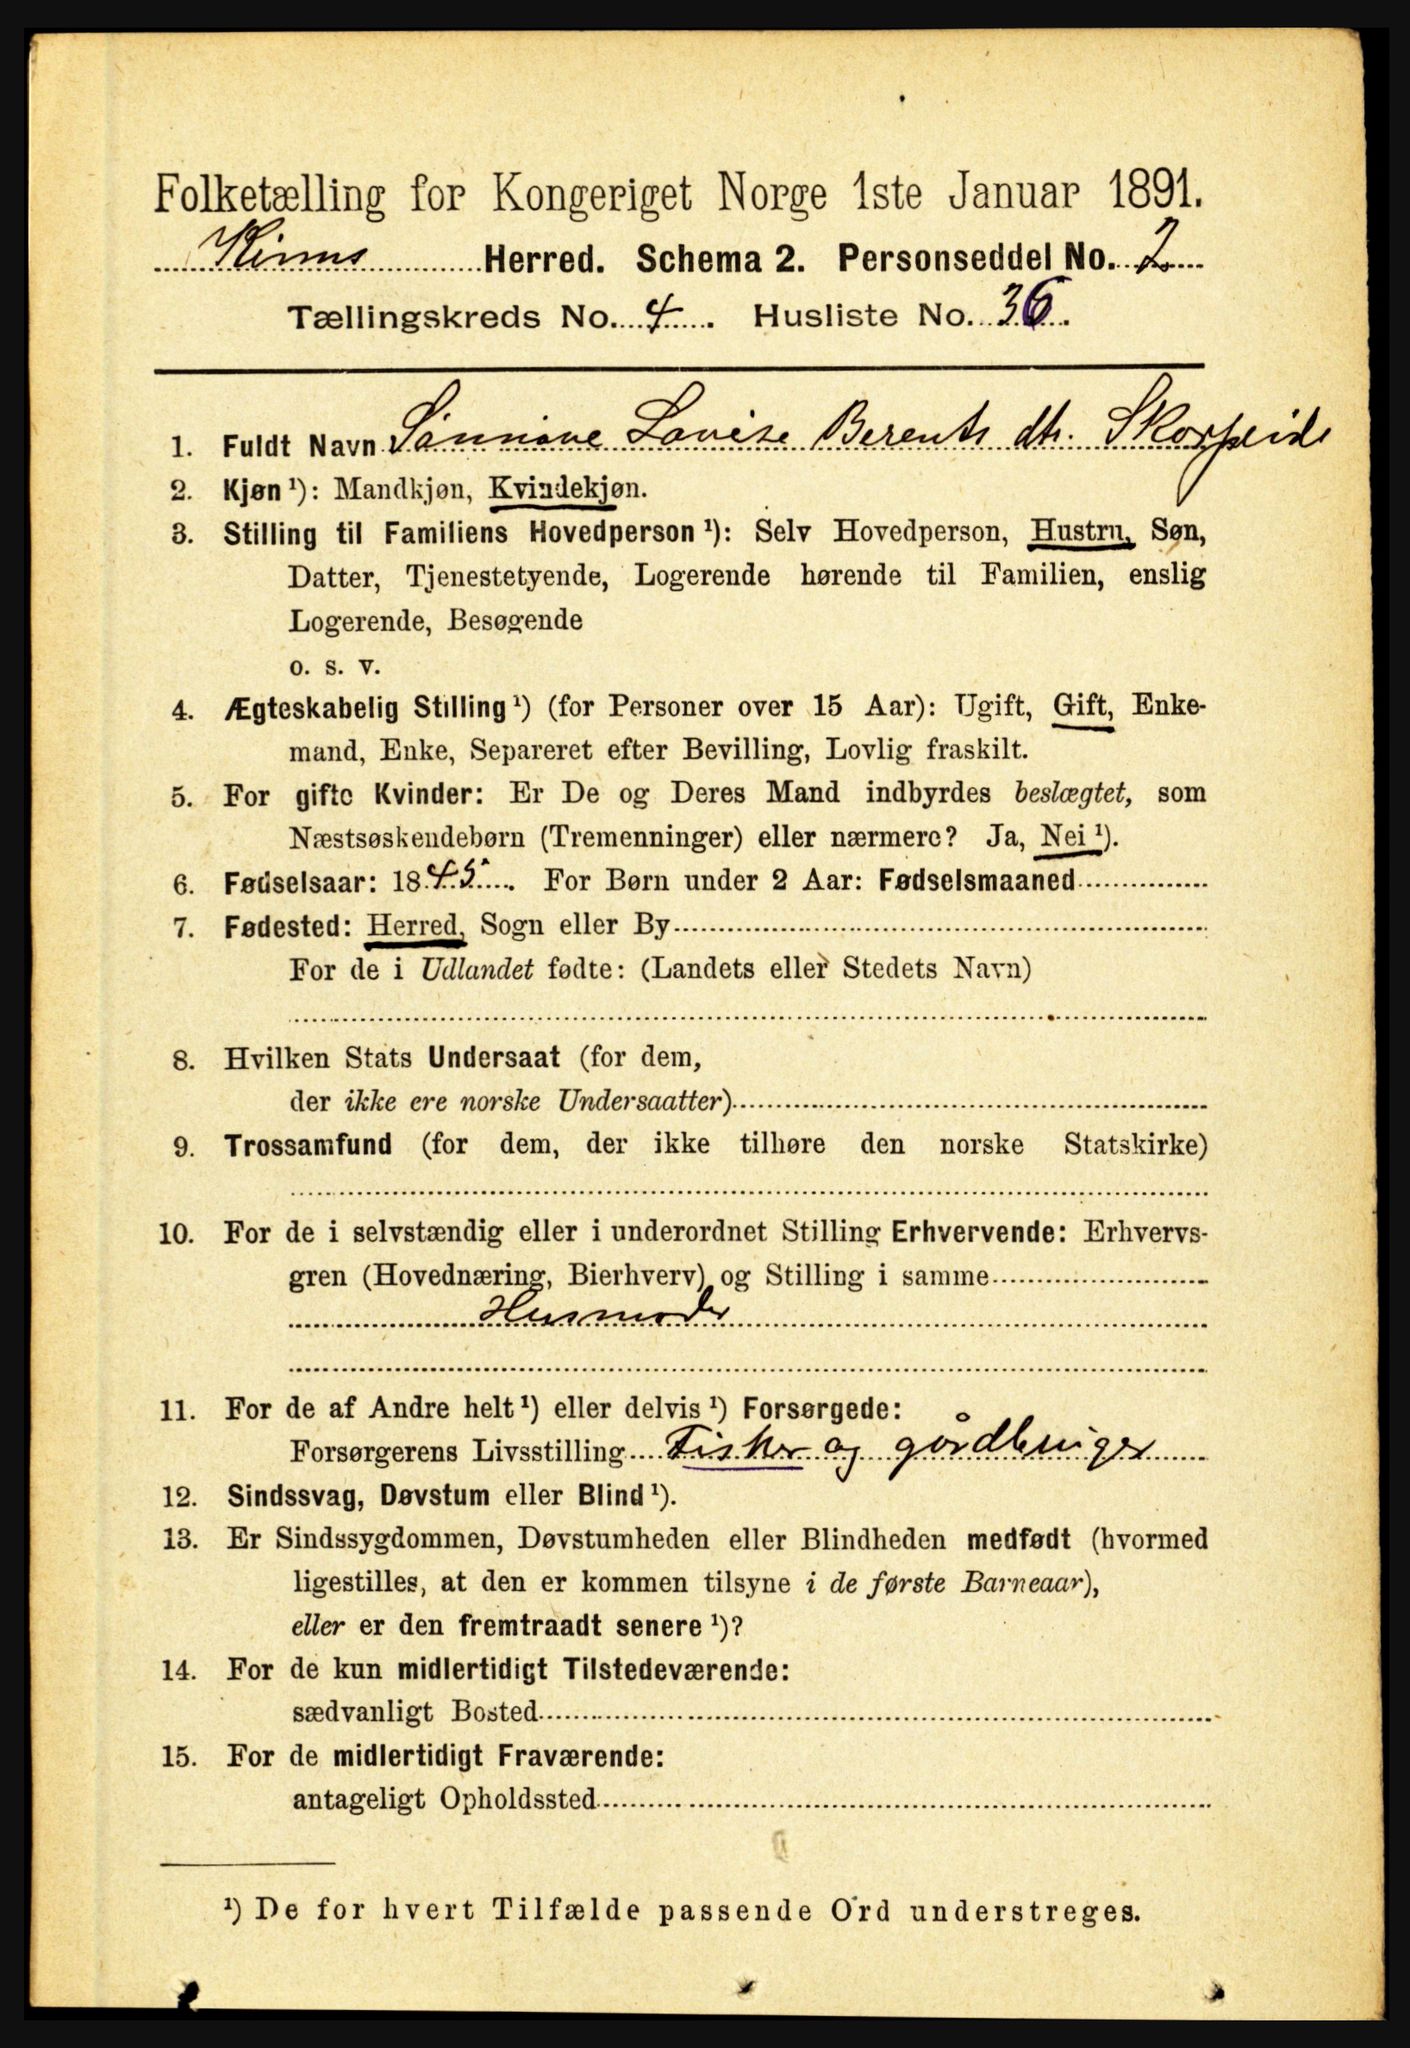 Folketælling for Kongeriget Norge 1ste Januar 1891.
Kinns Herred. Schema 2. Personseddel No. 2
Tællingskreds No. 4. Husliste No. 36.
1. Fuldt Navn Sønnøve Lovise Berents dtr. Skorpeide
2. Kjøn ¹): Mandkjøn, Kvindekjøn.
3. Stilling til Familiens Hovedperson ¹): Selv Hovedperson, Hustru, Søn,
Datter, Tjenestetyende, Logerende hørende til Familien, enslig
Logerende, Besøgende
o. s. v.
4. Ægteskabelig Stilling ¹) (for Personer over 15 Aar): Ugift, Gift, Enke-
mand, Enke, Separeret efter Bevilling, Lovlig fraskilt.
5. For gifte Kvinder: Er De og Deres Mand indbyrdes beslægtet, som
Næstsøskendebørn (Tremenninger) eller nærmere? Ja, Nei ¹).
6. Fødselsaar: 1845. For Børn under 2 Aar: Fødselsmaaned
7. Fødested: Herred, Sogn eller By
For de i Udlandet fødte: (Landets eller Stedets Navn)
8. Hvilken Stats Undersaat (for dem,
der ikke ere norske Undersaatter)
9. Trossamfund (for dem, der ikke tilhøre den norske Statskirke)
10. For de i selvstændig eller i underordnet Stilling Erhvervende: Erhvervs-
gren (Hovednæring, Bierhverv) og Stilling i samme
Husmoder
11. For de af Andre helt ¹) eller delvis ¹) Forsørgede:
Forsørgerens Livsstilling Fisker og gårdbruger
12. Sindssvag, Døvstum eller Blind ¹).
13. Er Sindssygdommen, Døvstumheden eller Blindheden medfødt (hvormed
ligestilles, at den er kommen tilsyne i de første Barneaar),
eller er den fremtraadt senere ¹)?
14. For de kun midlertidigt Tilstedeværende:
sædvanligt Bosted
15. For de midlertidigt Fraværende:
antageligt Opholdssted
¹) De for hvert Tilfælde passende Ord understreges.